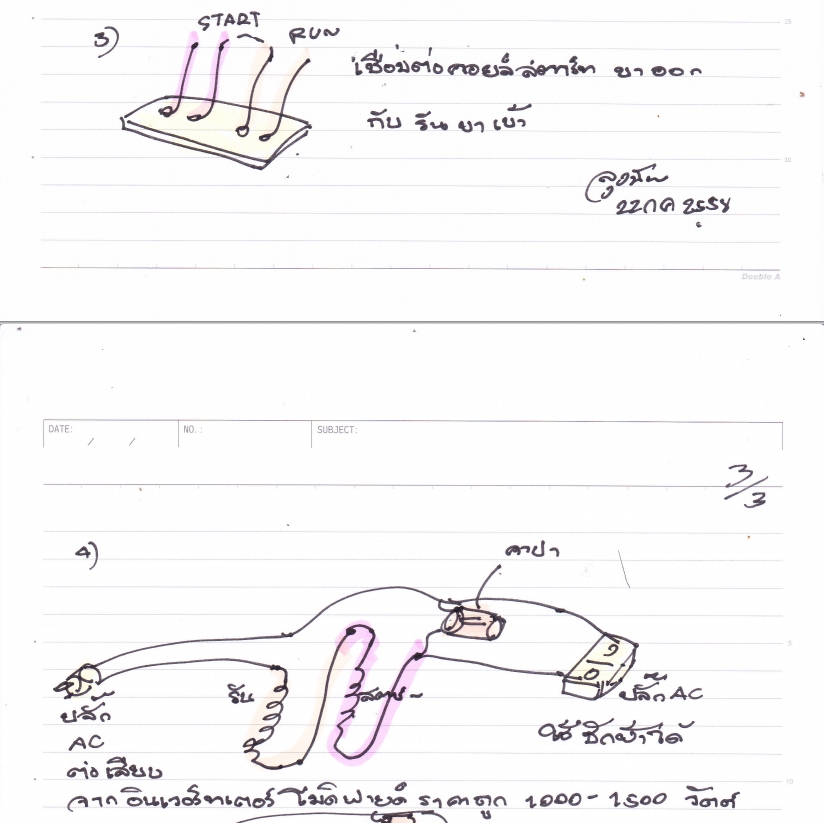 START
3) RUN
เชื่อมต่อคอยล์สตาร์ท ขาออก
กับ รัน ขาเข้า
ลุงมัน
22 กค 2558
Double A
DATE: / / NO.: SUBJECT:
3/3
4) คาปา
รัน สตาร์ท ปลั๊ก AC
ปลั๊ก ใช้ ซักผ้าได้
AC
ต่อเสียบ
จาก อินเวอร์ทเตอร์ โมดิฟายด์ ราคาถูก 1000-1500 วัตต์